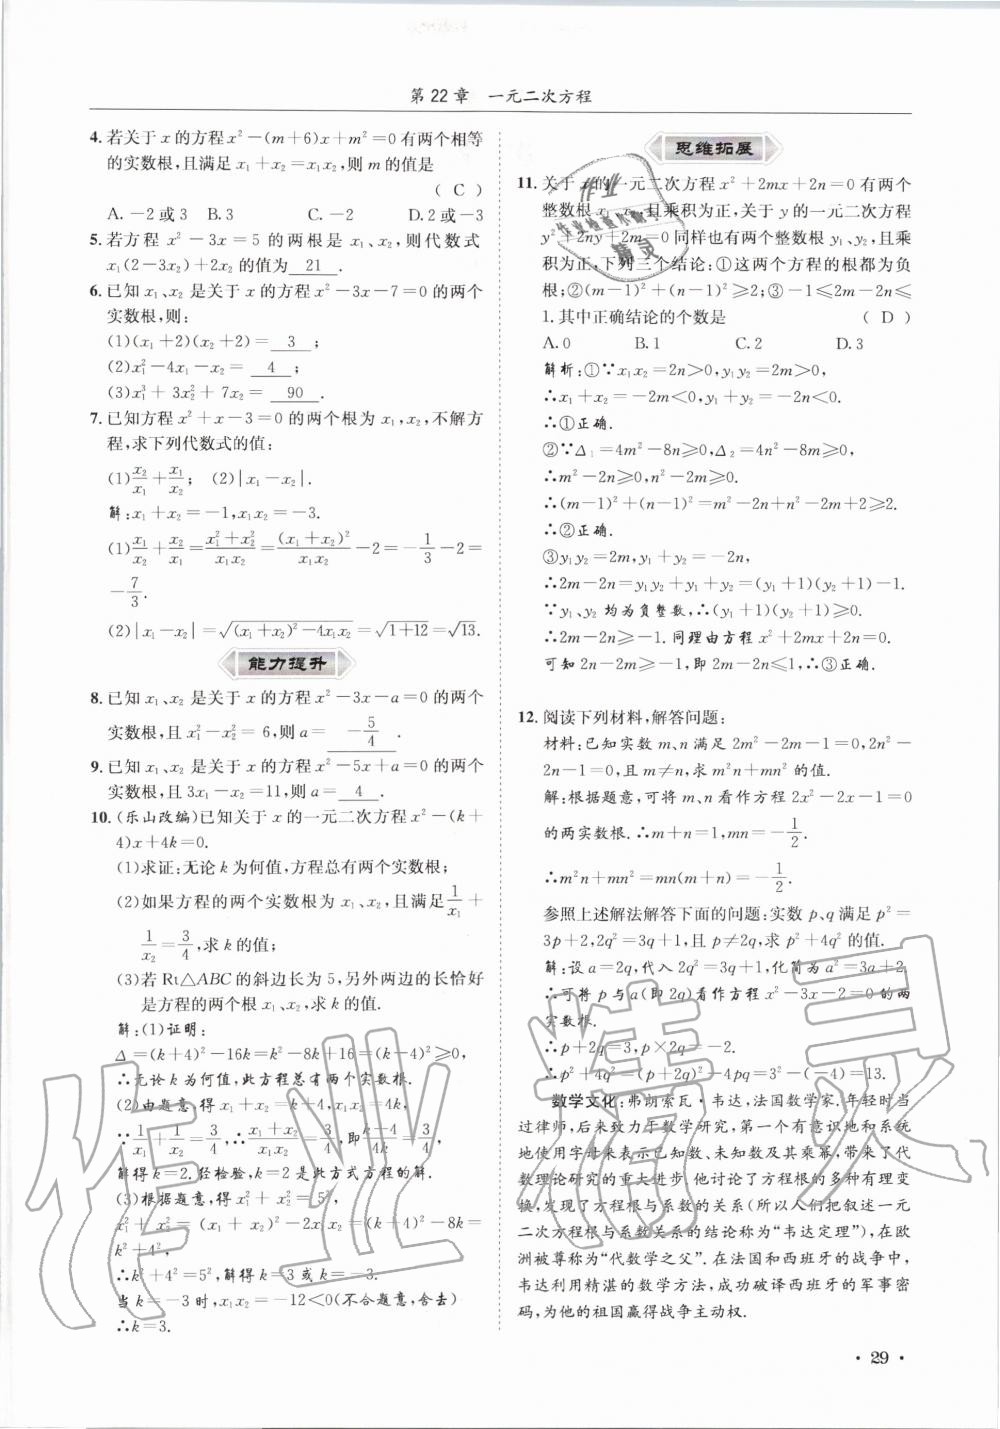 第22章 一元二次方程
4. 若关于x的方程x²-(m+6)x+m²=0有两个相等
的实数根,且满足x₁+x₂=x₁x₂,则m的值是
( C )
A. -2或3 B. 3 C. -2 D. 2或-3
5. 若方程 x²-3x=5的两根是x₁、x₂,则代数式
x₁(2-3x₂)+2x₂的值为 21 .
6. 已知x₁、x₂是关于x的方程x²-3x-7=0的两个
实数根,则:
(1)(x₁+2)(x₂+2)= 3 ;
(2)x₁²-4x₁-x₂= 4 ;
(3)x₁³+3x₂²+7x₂= 90 .
7. 已知方程x²+x-3=0的两个根为x₁,x₂,不解方
程,求下列代数式的值:
(1)x₂/x₁+x₁/x₂; (2)|x₁-x₂|.
解:x₁+x₂=-1,x₁x₂=-3.
(1)x₁/x₂+x₂/x₁=(x₁²+x₂²)/(x₁x₂)=(x₁+x₂)²/(x₁x₂)-2=-1/3-2=
-7/3.
(2)|x₁-x₂|=√((x₁+x₂)²-4x₁x₂)=√(1+12)=√13.
能力提升
8. 已知x₁、x₂是关于x的方程x²-3x-a=0的两个
实数根,且x₁²-x₂²=6,则a= -5/4 .
9. 已知x₁、x₂是关于x的方程x²-5x+a=0的两个
实数根,且3x₁-x₂=11,则a= 4 .
10. (乐山改编)已知关于x的一元二次方程x²-(k+
4)x+4k=0.
(1)求证:无论k为何值,方程总有两个实数根;
(2)如果方程的两个实数根为x₁、x₂,且满足1/x₁+
1/x₂=3/4,求k的值;
(3)若Rt△ABC的斜边长为5,另外两边的长恰好
是方程的两个根x₁、x₂,求k的值.
解:(1)证明:
Δ=(k+4)²-16k=k²-8k+16=(k-4)²≥0,
∴无论k为何值,此方程总有两个实数根.
(2)由题意得x₁+x₂=k+4,x₁x₂=4k,
∵1/x₁+1/x₂=3/4,∴(x₁+x₂)/(x₁x₂)=3/4,即(k+4)/4k=3/4,
解得k=2.经检验,k=2是此方式方程的解.
(3)根据题意,得x₁²+x₂²=5²,
x₁²+x₂²=(x₁+x₂)²-2x₁x₂=(k+4)²-8k=
k²+4²,
∴k²+4²=5²,解得k=3或k=-3.
当k=-3时,x₁x₂=-12<0(不合题意,舍去)
∴k=3.
思维拓展
11. 关于x的一元二次方程x²+2mx+2n=0有两个
整数根x₁、x₂且乘积为正,关于y的一元二次方程
y²+2ny+2m=0同样也有两个整数根y₁、y₂,且乘
积为正,下列三个结论:①这两个方程的根都为负
根;②(m-1)²+(n-1)²≥2;③-1≤2m-2n≤
1.其中正确结论的个数是 ( D )
A. 0 B. 1 C. 2 D. 3
解析:①∵x₁x₂=2n>0,y₁y₂=2m>0,
∴x₁+x₂=-2m<0,y₁+y₂=-2n<0.
∴①正确.
②∵Δ₁=4m²-8n≥0,Δ₂=4n²-8m≥0,
∴m²-2n≥0,n²-2m≥0.
∴(m-1)²+(n-1)²=m²-2n+n²-2m+2≥2.
∴②正确.
③y₁y₂=2m,y₁+y₂=-2n,
∴2m-2n=y₁y₂+y₁+y₂=(y₁+1)(y₂+1)-1.
∵y₁、y₂均为负整数,∴(y₁+1)(y₂+1)≥0.
∴2m-2n≥-1.同理由方程x²+2mx+2n=0,
可知2n-2m≥-1,即2m-2n≤1,∴③正确.
12. 阅读下列材料,解答问题:
材料:已知实数m、n满足2m²-2m-1=0,2n²-
2n-1=0,且m≠n,求m²n+mn²的值.
解:根据题意,可将m、n看作方程2x²-2x-1=0
的两实数根.∴m+n=1,mn=-1/2.
∴m²n+mn²=mn(m+n)=-1/2.
参照上述解法解答下面的问题:实数p、q满足p²=
3p+2,2q²=3q+1,且p≠2q,求p²+4q²的值.
解:设a=2q,代入2q²=3q+1,化简为a²=3a+2,
∴可将p与a(即2q)看作方程x²-3x-2=0的两
实数根.
∴p+2q=3,p×2q=-2.
∴p²+4q²=(p+2q)²-4pq=3²-(-4)=13.
数学文化:弗朗索瓦·韦达,法国数学家.年轻时当
过律师,后来致力于数学研究,第一个有意识地和系统
地使用字母来表示已知数、未知数及其乘幂,带来了代
数理论研究的重大进步.他讨论了方程根的多种有理变
换,发现了方程根与系数的关系(所以人们把叙述一元
二次方程根与系数关系的结论称为“韦达定理”),在欧
洲被尊称为“代数学之父”.在法国和西班牙的战争中,
韦达利用精湛的数学方法,成功破译西班牙的军事密
码,为他的祖国赢得战争主动权.
· 29 ·
作业精灵